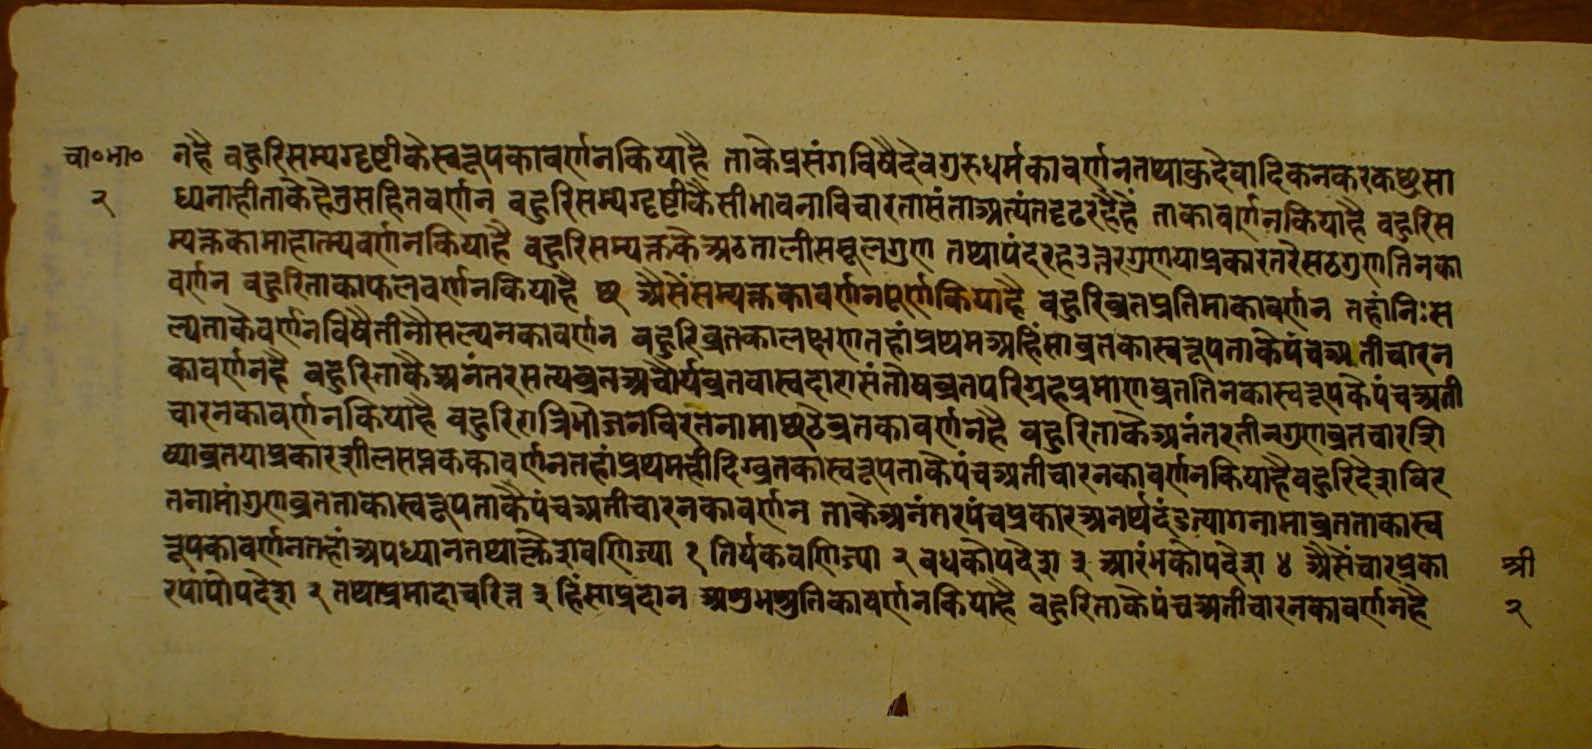 चा०भा० नहै बहुरिसम्यग्दृष्टीकेस्वरूपकावर्णनकियाहै ताकेप्रसंगविषैदेवगुरुधर्मकावर्णनतथाकुदेवादिकनकरकछुसा
२ ध्यनाहीताकेहेतुसहितवर्णन बहुरिसम्यग्दृष्टीकैसीभावनाविचारतासंताअत्यंतदृढरहैहैं ताकावर्णनकियाहै बहुरिस
म्यक्तकामाहात्म्यवर्णनकियाहै बहुरिसम्यक्तकैअठतालीसमूलगुण तथापंदरहउत्तरगुणयाप्रकारतरैसठगुणतिनका
वर्णन बहुरिताकाफलवर्णनकियाहै छ अैसैंसम्यक्तकावर्णनपूर्णकियाहै बहुरिव्रतप्रतिमाकावर्णन तहांनिःस
ल्यताकेवर्णनविषैतीनौसल्यनकावर्णन बहुरिव्रतकालक्षणतहांप्रथमअहिंसाव्रतकास्वरूपताकेपंचअतीचारन
कावर्णनहै बहुरिताकैअनंतरसत्यव्रतअचौर्यव्रतवास्वदारासंतोषव्रतपरिग्रहप्रमाणव्रततिनकास्वरूपकेपंचअती
चारनकावर्णनकियाहै बहुरिरात्रिभोजनविरतनामाछठेव्रतकावर्णनहै बहुरिताकैअनंतरतीनगुणव्रतचारशि
ष्याव्रतयाप्रकारशीलसप्तककावर्णनतहांप्रथमहीदिग्व्रतकास्वरूपताकेपंचअतीचारनकावर्णनकियाहैबहुरिदेशविर
तनामांगुणव्रतताकास्वरूपताकेपंचअतीचारनकावर्णन ताकैअनंतरपंचप्रकारअनर्थदंडत्यागनामाव्रतताकास्व
रूपकावर्णनतहांअपध्यानतथाक्लेशवणिज्या १ तिर्यकवणिज्या २ वधकोपदेश ३ आरंभकोपदेश ४ अैसैंचारप्रका श्री
रपापोपदेश २ तथाप्रमादाचरित्त ३ हिंसाप्रदान अशुभश्रुतिकावर्णनकियाहै बहुरिताकेपंचअतीचारनकावर्णनहै २